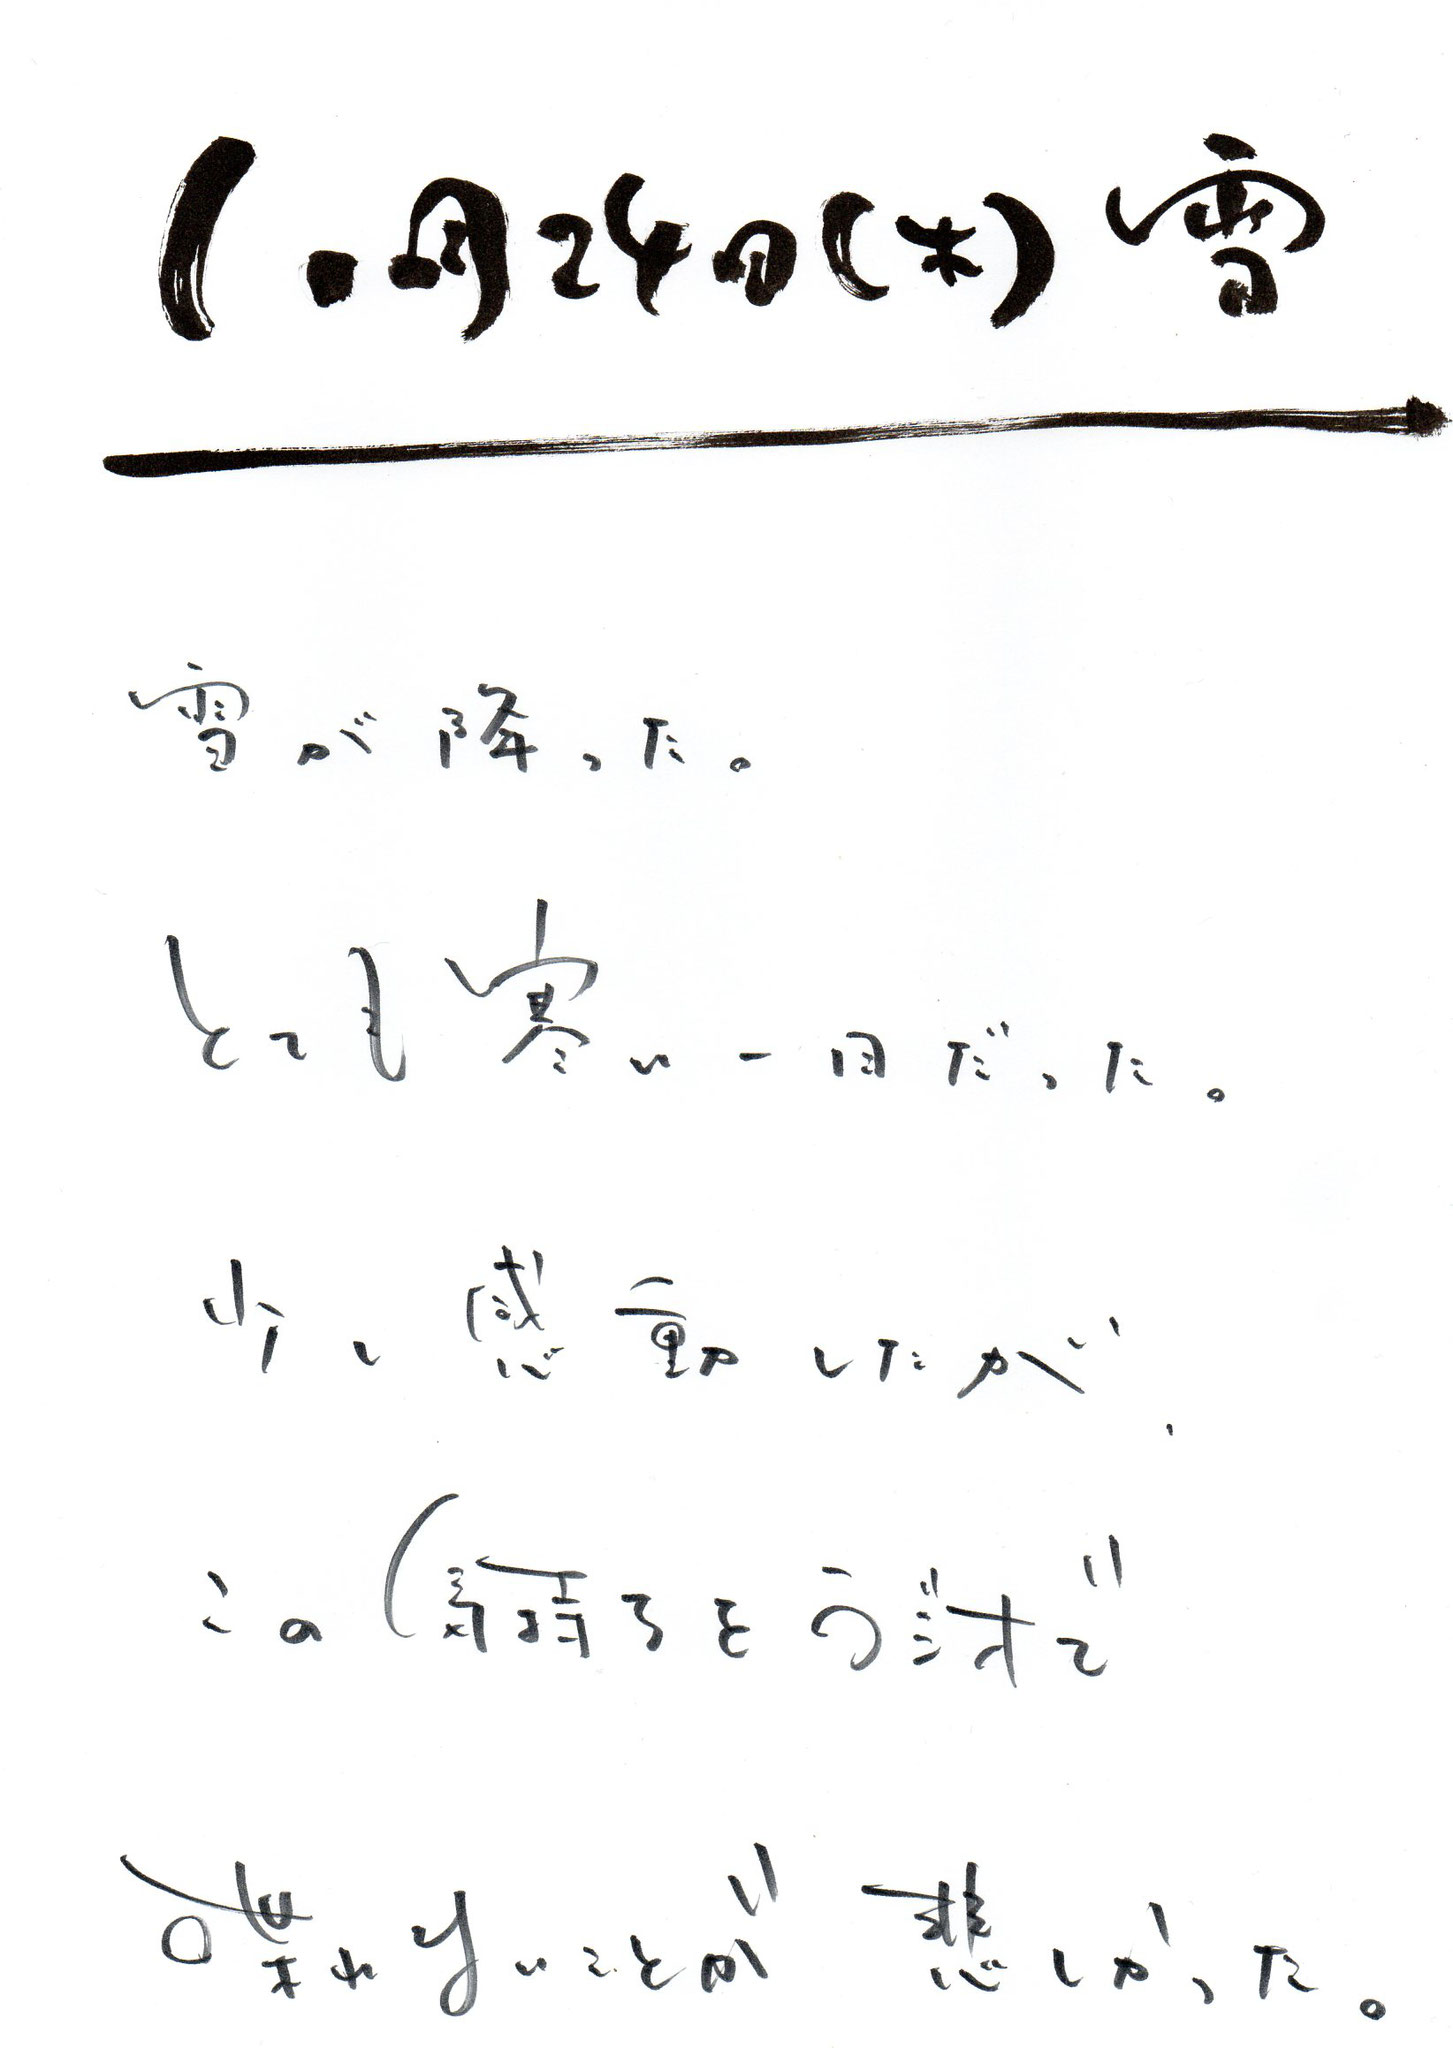 11月24日(木)雪
雪が降った。
とても寒い一日だった。
少し感動したが、
この気持ちをラジオで
喋れないことが悲しかった。